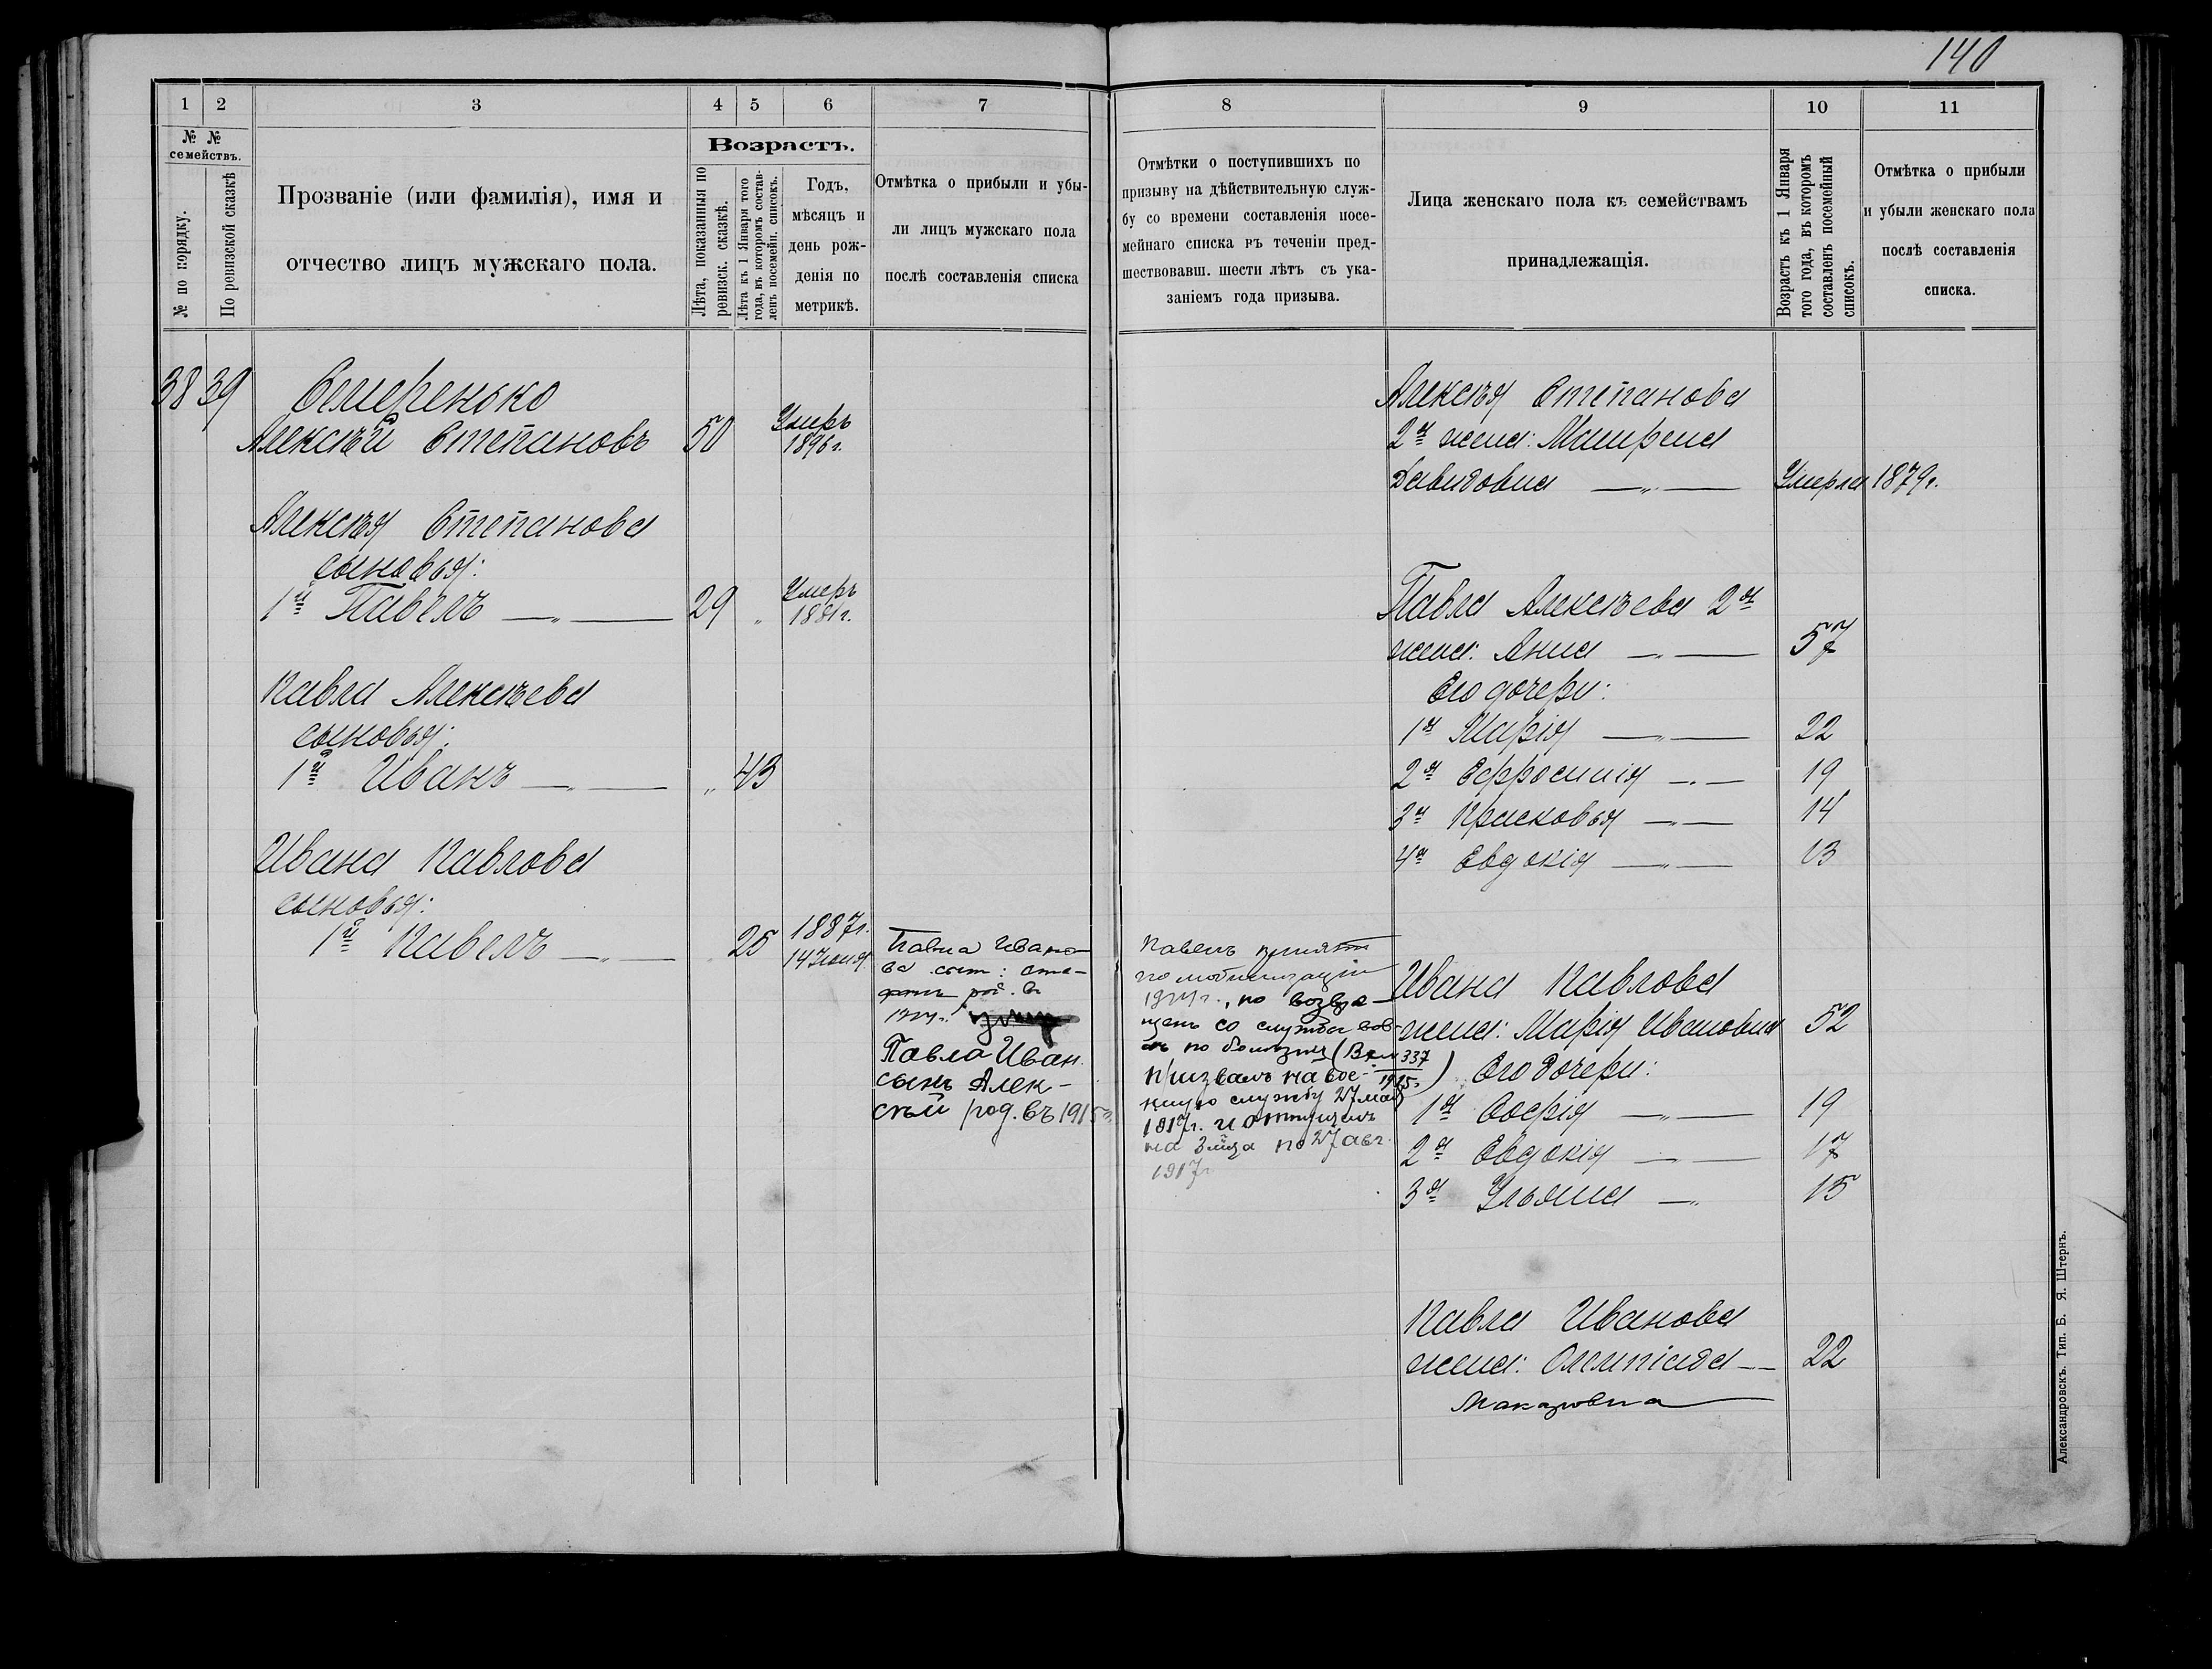 140
1 2 3 4 5 6 7
№ №
семействъ.
№ по порядку.
По ревизской сказкѣ
Прозваніе (или фамилія), имя и
отчество лицъ мужскаго пола.
Возрастъ.
Лѣта, показанныя по
ревизск. сказкѣ.
Лѣта къ 1 Января того
года, въ которомъ состав-
ленъ посемейн. списокъ.
Годъ,
мѣсяцъ и
день рож-
денія по
метрикѣ.
Отмѣтка о прибыли и убы-
ли лицъ мужскаго пола
послѣ составленія списка
38 39 Семеренько
Алексѣй Степановъ 50 Умеръ
1896 г.
Алексѣя Степанова
сыновья:
1й Павелъ —„— 29 „ Умеръ
1881 г.
Павла Алексѣева
сыновья:
1й Иванъ —„— „ 43
Ивана Павлова
сыновья:
1й Павелъ —„— 25 1887 г.
14 Іюня
Павла Ивано-
ва сын:
род. в
Павла Иван.
сынъ Алек-
сѣй род. въ 1915 г.
8 9 10 11
Отмѣтки о поступившихъ по
призыву на дѣйствительную служ-
бу со времени составленія посе-
мейнаго списка въ теченіи пред-
шествовавш. шести лѣтъ съ ука-
заніемъ года призыва.
Лица женскаго пола къ семействамъ
принадлежащія.
Возрастъ къ 1 Января
того года, въ которомъ
составленъ посемейный
списокъ.
Отмѣтка о прибыли
и убыли женскаго пола
послѣ составленія
списка.
Алексѣя Степанова
2я жена:
Давидовна —„— Умерла 1879 г.
Павла Алексѣева 2я
жена: Анна —„— 57
Его дочери:
1я Марія —„— 22
2я Ефросинія —„— 19
3я Прасковья —„— 14
4я Евдокія —„— 13
Павелъ принятъ
по мобилизаціи
1914 г., но возвра-
щенъ со службы вов-
по болѣзни (Вх. № 337
1915 г.)
Призванъ на вое-
нную службу 27 мая
1917 г. и отпущенъ
на 3 м-ца по 27 авг.
1917 г.
Ивана Павлова
жена: Марія Ивановна 52
Его дочери:
1я Софія —„— 19
2я Евдокія —„— 17
3я Ульяна —„ 15
Павла Иванова
жена: Олимпіада — 22
Макаровна
Александровскъ. Тип. Б. Я. Штернъ.